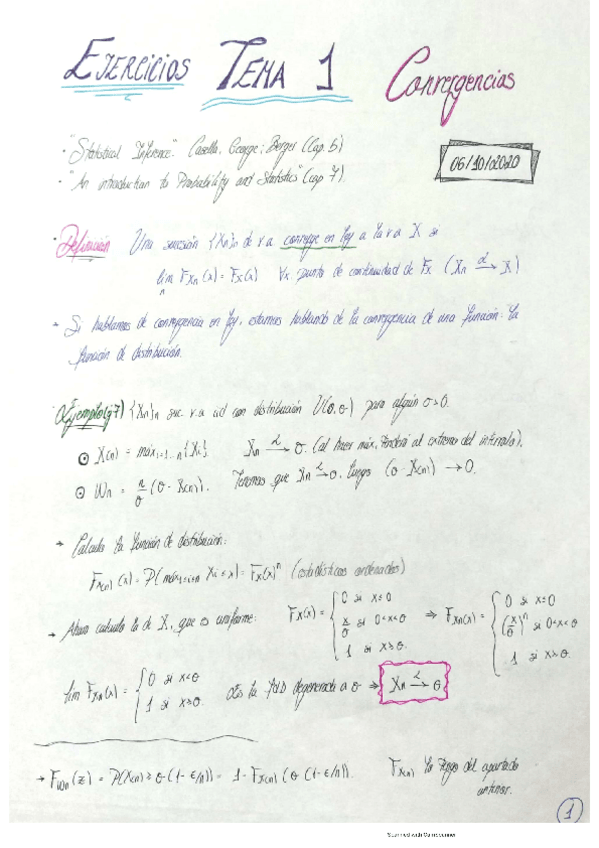 EJERCICIOS TEMA 1 Convergencias
· "Statistical Inference". Casella, George; Berger (Cap. 5)
· "An introduction to Probability and Statistics" (cap 7).
06/10/2020
· Definición Una sucesión {Xn}n de v.a converge en ley a la v.a X si
lim n F_Xn(x) = F_X(x) ∀x punto de continuidad de F_X (Xn →ℒ X)
→ Si hablamos de convergencia en ley, estamos hablando de la convergencia de una función: la
función de distribución.
· Ejemplo(g7) {Xn}n suc v.a iid con distribución U(0,θ) para algún θ>0.
⊙ X(n) = máx i=1..n {Xi}. Xn →ℒ θ. (al hacer máx, tenderá al extremo del intervalo).
⊙ Wn = n/θ (θ - X(n)). Tenemos que Xn →ℒ θ, luego (θ - X(n)) → 0.
→ Calculo la función de distribución:
F_X(n)(x) = P(máx 1≤i≤n Xi ≤ x) = F_X(x)^n (estadísticos ordenados)
→ Ahora calculo la de X, que es uniforme: F_X(x) = { 0 si x≤0 ; x/θ si 0<x<θ ; 1 si x≥θ. ⇒ F_X(n)(x) = { 0 si x≤0 ; (x/θ)^n si 0<x<θ ; 1 si x≥θ.
lim F_Xn(x) = { 0 si x<θ ; 1 si x≥θ. Es la degenerada a θ → Xn →ℒ θ
→ F_Wn(z) = P(X(n) ≥ θ(1-ε/n)) = 1 - F_X(n)(θ(1-ε/n)). F_X(n) la tengo del apartado
anterior.
1
Scanned with CamScanner